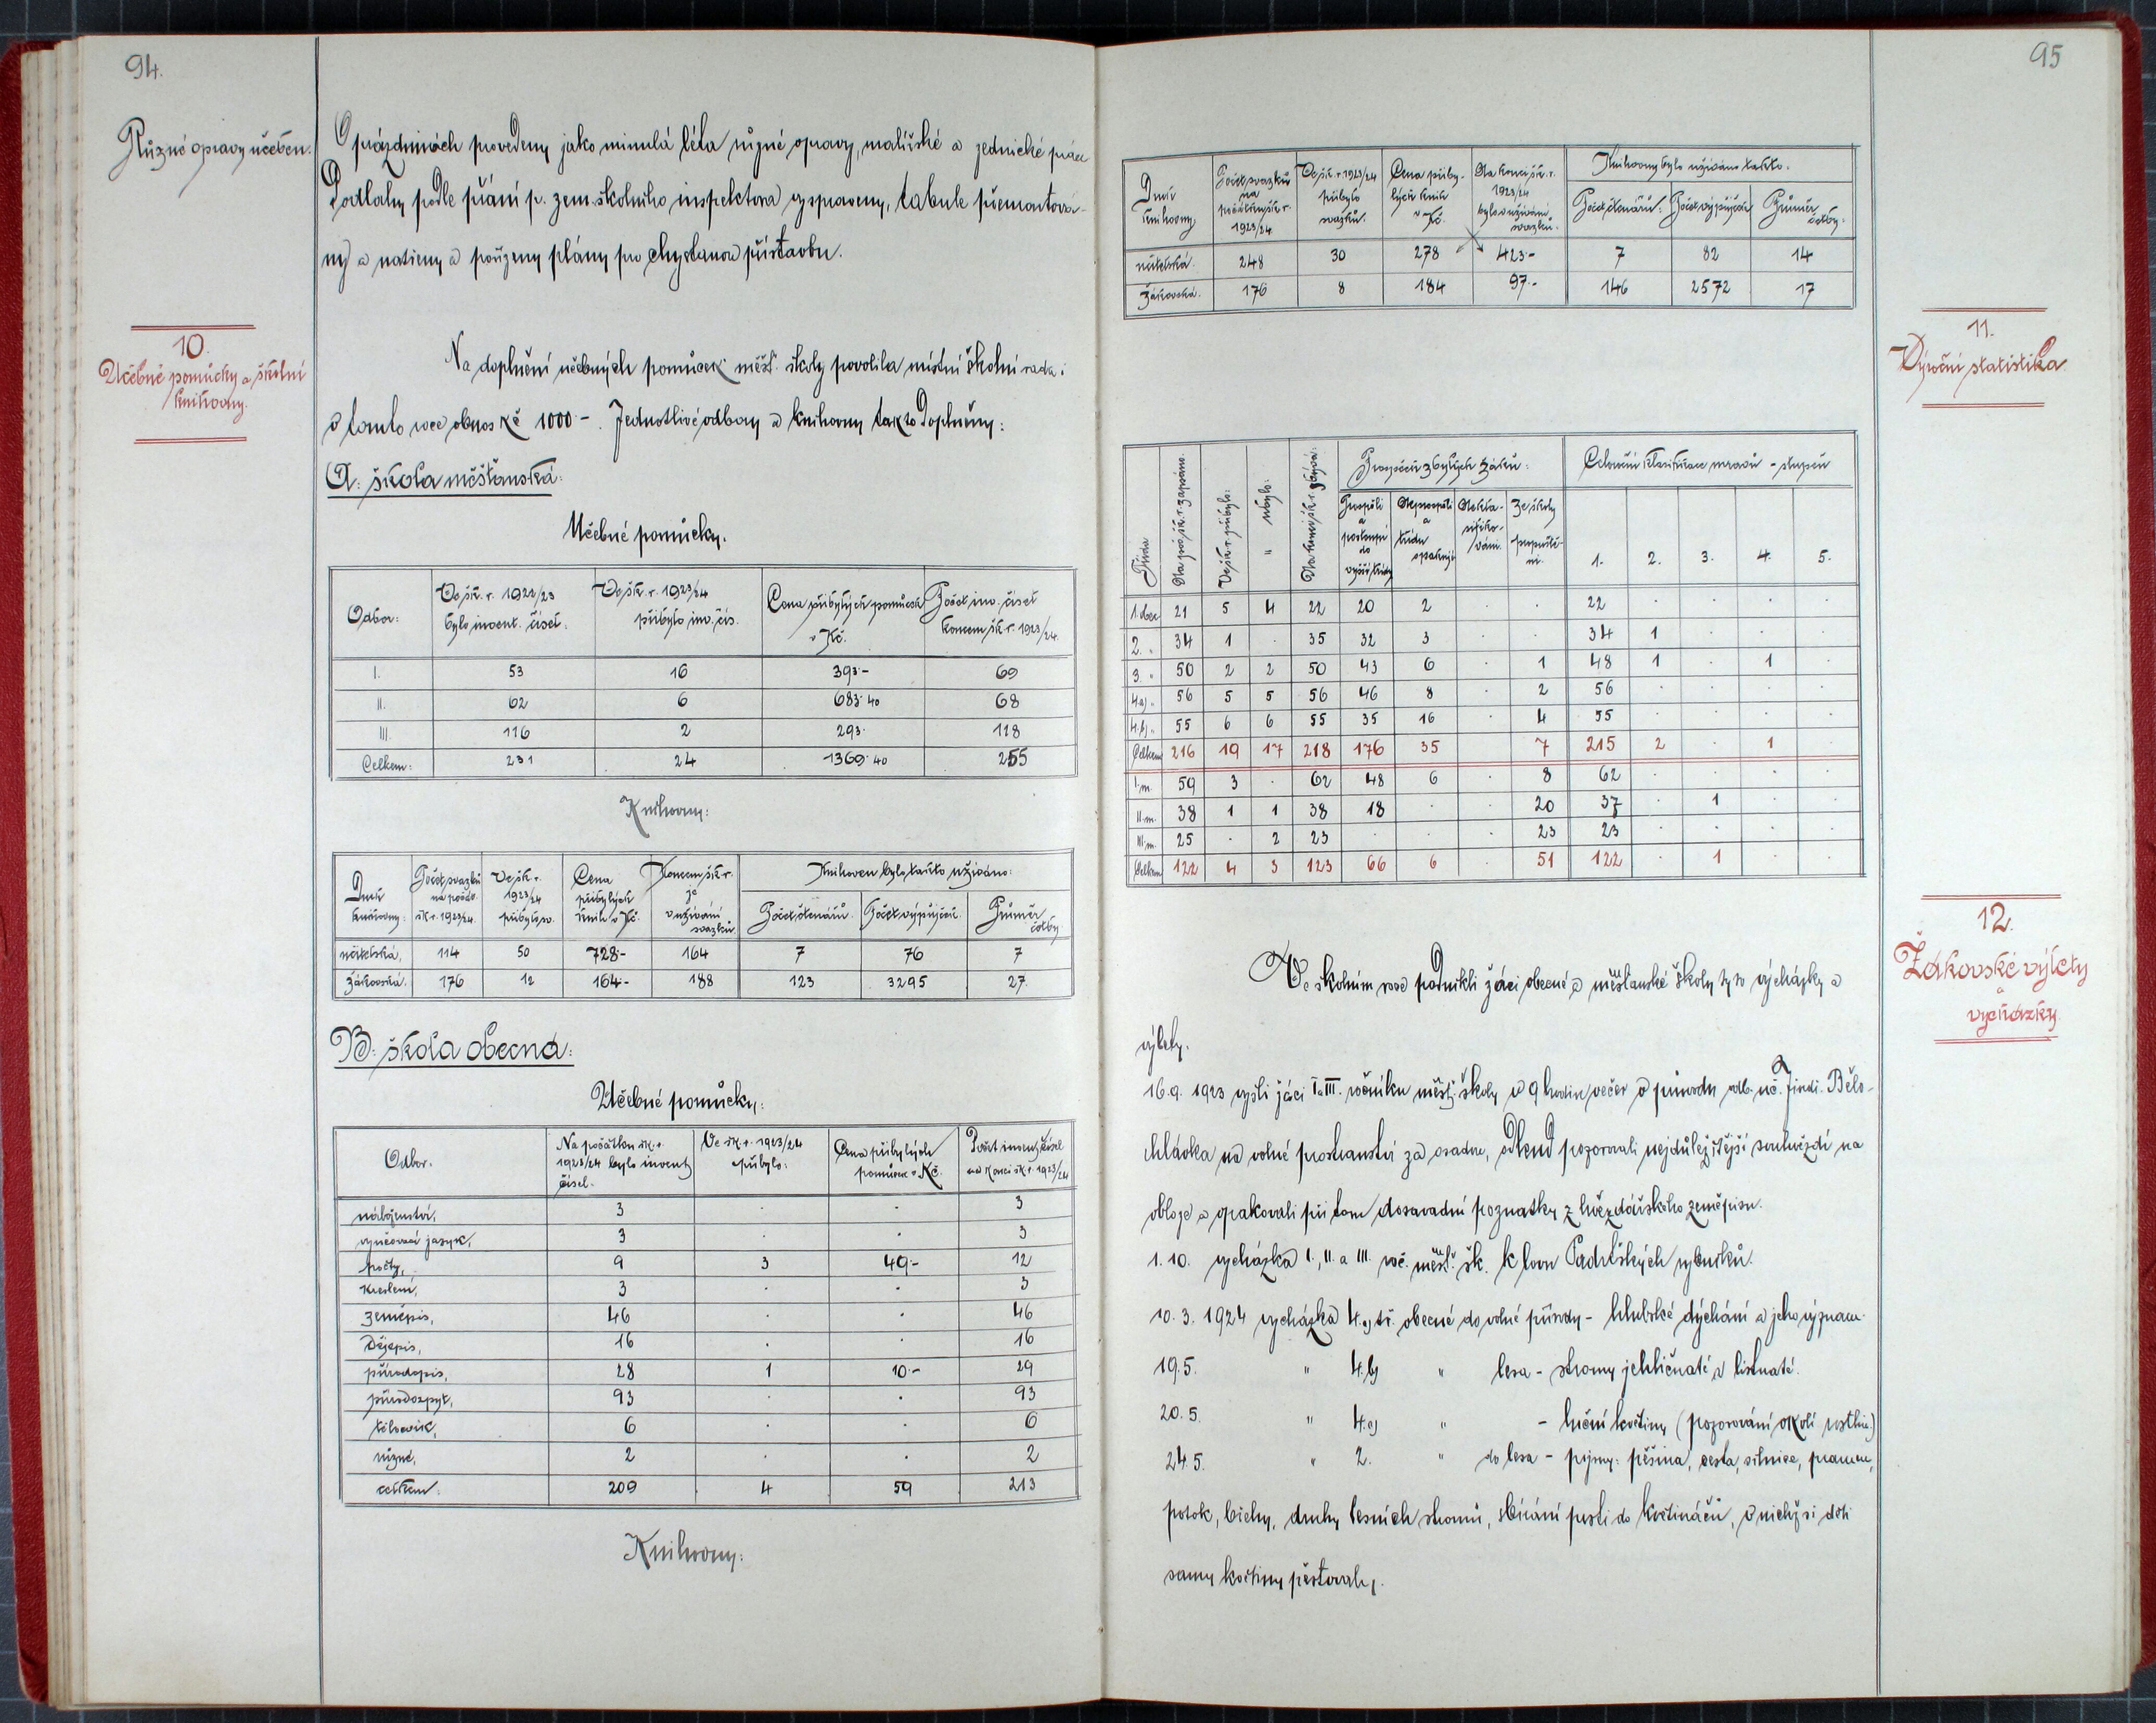 94.
Různé opravy učeben.
O prázdninách provedeny jako minulá léta různé opravy, malířské a zednické práce
Podlahy podle přání p. zem. školního inspektora vyspraveny, tabule přemontová-
ny a natřeny a pořízeny plány pro chystanou přístavbu.
10.
Učebné pomůcky a školní
knihovny.
Na doplnění učebných pomůcek měšť. školy povolila místní školní rada
v tomto roce obnos Kč 1000·-. Jednotlivé odbory a knihovny takto doplněny:
A: škola měšťanská:
Učebné pomůcky.
Odbor: Ve šk. r. 1922/23 bylo invent. čísel: Ve šk. r. 1923/24 přibylo inv. čís. Cena přibylých pomůcek v Kč. Počet inv. čísel koncem šk. r. 1923/24.
I. 53 16 393·- 69
II. 62 6 683·40 68
III. 116 2 293· 118
Celkem: 231 24 1369·40 255
Knihovny:
Druh knihovny: Počet svazků na počát. šk. r. 1923/24. Ve šk. r. 1923/24 přibylo sv. Cena přibylých knih v Kč. Koncem šk. r. je v užívání svazků. Knihoven bylo takto užíváno: Počet čtenářů. Počet výpůjček. Průměr četby
učitelská, 114 50 728·- 164 7 76 7
žákovská. 176 12 164·- 188 123 3295 27
B: škola obecná:
Učebné pomůcky:
Odbor. Na počátku šk. r. 1923/24 bylo invent. čísel. Ve šk. r. 1923/24 přibylo: Cena přibylých pomůcek v Kč. Počet invent. čísel na konci šk. r. 1923/24
náboženství, 3 · · 3
vyučovací jazyk, 3 · · 3
počty, 9 3 49·- 12
kreslení, 3 · · 3
zeměpis, 46 · · 46
dějepis, 16 · · 16
přírodopis, 28 1 10·- 29
přírodozpyt, 93 · · 93
tělocvik, 6 · · 6
různé, 2 · · 2
celkem: 209 4 59 213
Knihovny:
95
Druh knihovny: Počet svazků na počátku šk. r. 1923/24. Ve šk. r. 1923/24 přibylo svazků. Cena přiby- lých knih v Kč. Na konci šk. r. 1923/24 bylo v užívání svazků. Knihovny bylo užíváno takto. Počet čtenářů: Počet výpůjček Průměr četby:
učitelská. 248 30 278 423·- 7 82 14
žákovská. 176 8 184 97·- 146 2572 17
11.
Výroční statistika
Třída Na poč. šk. r. zapsáno. Ve šk. r. přibylo: " ubylo: Na konci šk. r. zbývá: Prospěch zbylých žáků: Prospěli a postoupí do vyšší třídy Neprospěli a třídu opakují Nekla- sifiko- váni. Ze školy propuště- ni. Celoroční klasifikace mravů - stupeň 1. 2. 3. 4. 5.
1. obec 21 5 4 22 20 2 · · 22 · · · ·
2. " 34 1 · 35 32 3 · · 34 1 · · ·
3. " 50 2 2 50 43 6 · 1 48 1 · 1 ·
4.a) " 56 5 5 56 46 8 · 2 56 · · · ·
4.b) " 55 6 6 55 35 16 · 4 55 · · · ·
Celkem 216 19 17 218 176 35 7 215 2 · 1 ·
I. m. 59 3 · 62 48 6 · 8 62 · · · ·
II. m. 38 1 1 38 18 · · 20 37 · 1 · ·
III. m. 25 · 2 23 · · · 23 23 · · · ·
Celkem 122 4 3 123 66 6 · 51 122 · 1 · ·
12.
Žákovské výlety
a
vycházky.
Ve školním roce podnikli žáci obecné a měšťanské školy tyto vycházky a
výlety.
16.9. 1923 vyšli žáci I a III. ročníku měšť. školy v 9 hodin večer v průvodu odb. uč. Jindř. Bělo-
hlávka na volné prostranství za osadou, odkud pozorovali nejdůležitější souhvězdí na
obloze a opakovali při tom dosavadní poznatky z hvězdářského zeměpisu.
1.10. vycházka I., II. a III. roč. měšť. šk. k lovu Padrťských rybníků.
10.3. 1924 vycházka 4.a) tř. obecné do volné přírody - hluboké dýchání a jeho význam.
19.5. " 4.b) " lesa - stromy jehličnaté a listnaté.
20.5. " 4.a) " - luční květiny (pozorování okolí rostlin.)
24.5. " 2. " do lesa - pojmy: pěšina, cesta, silnice, pramen,
potok, břehy, druhy lesních stromů, sbírání prsti do květináčů, v nichž si děti
samy květiny pěstovaly.